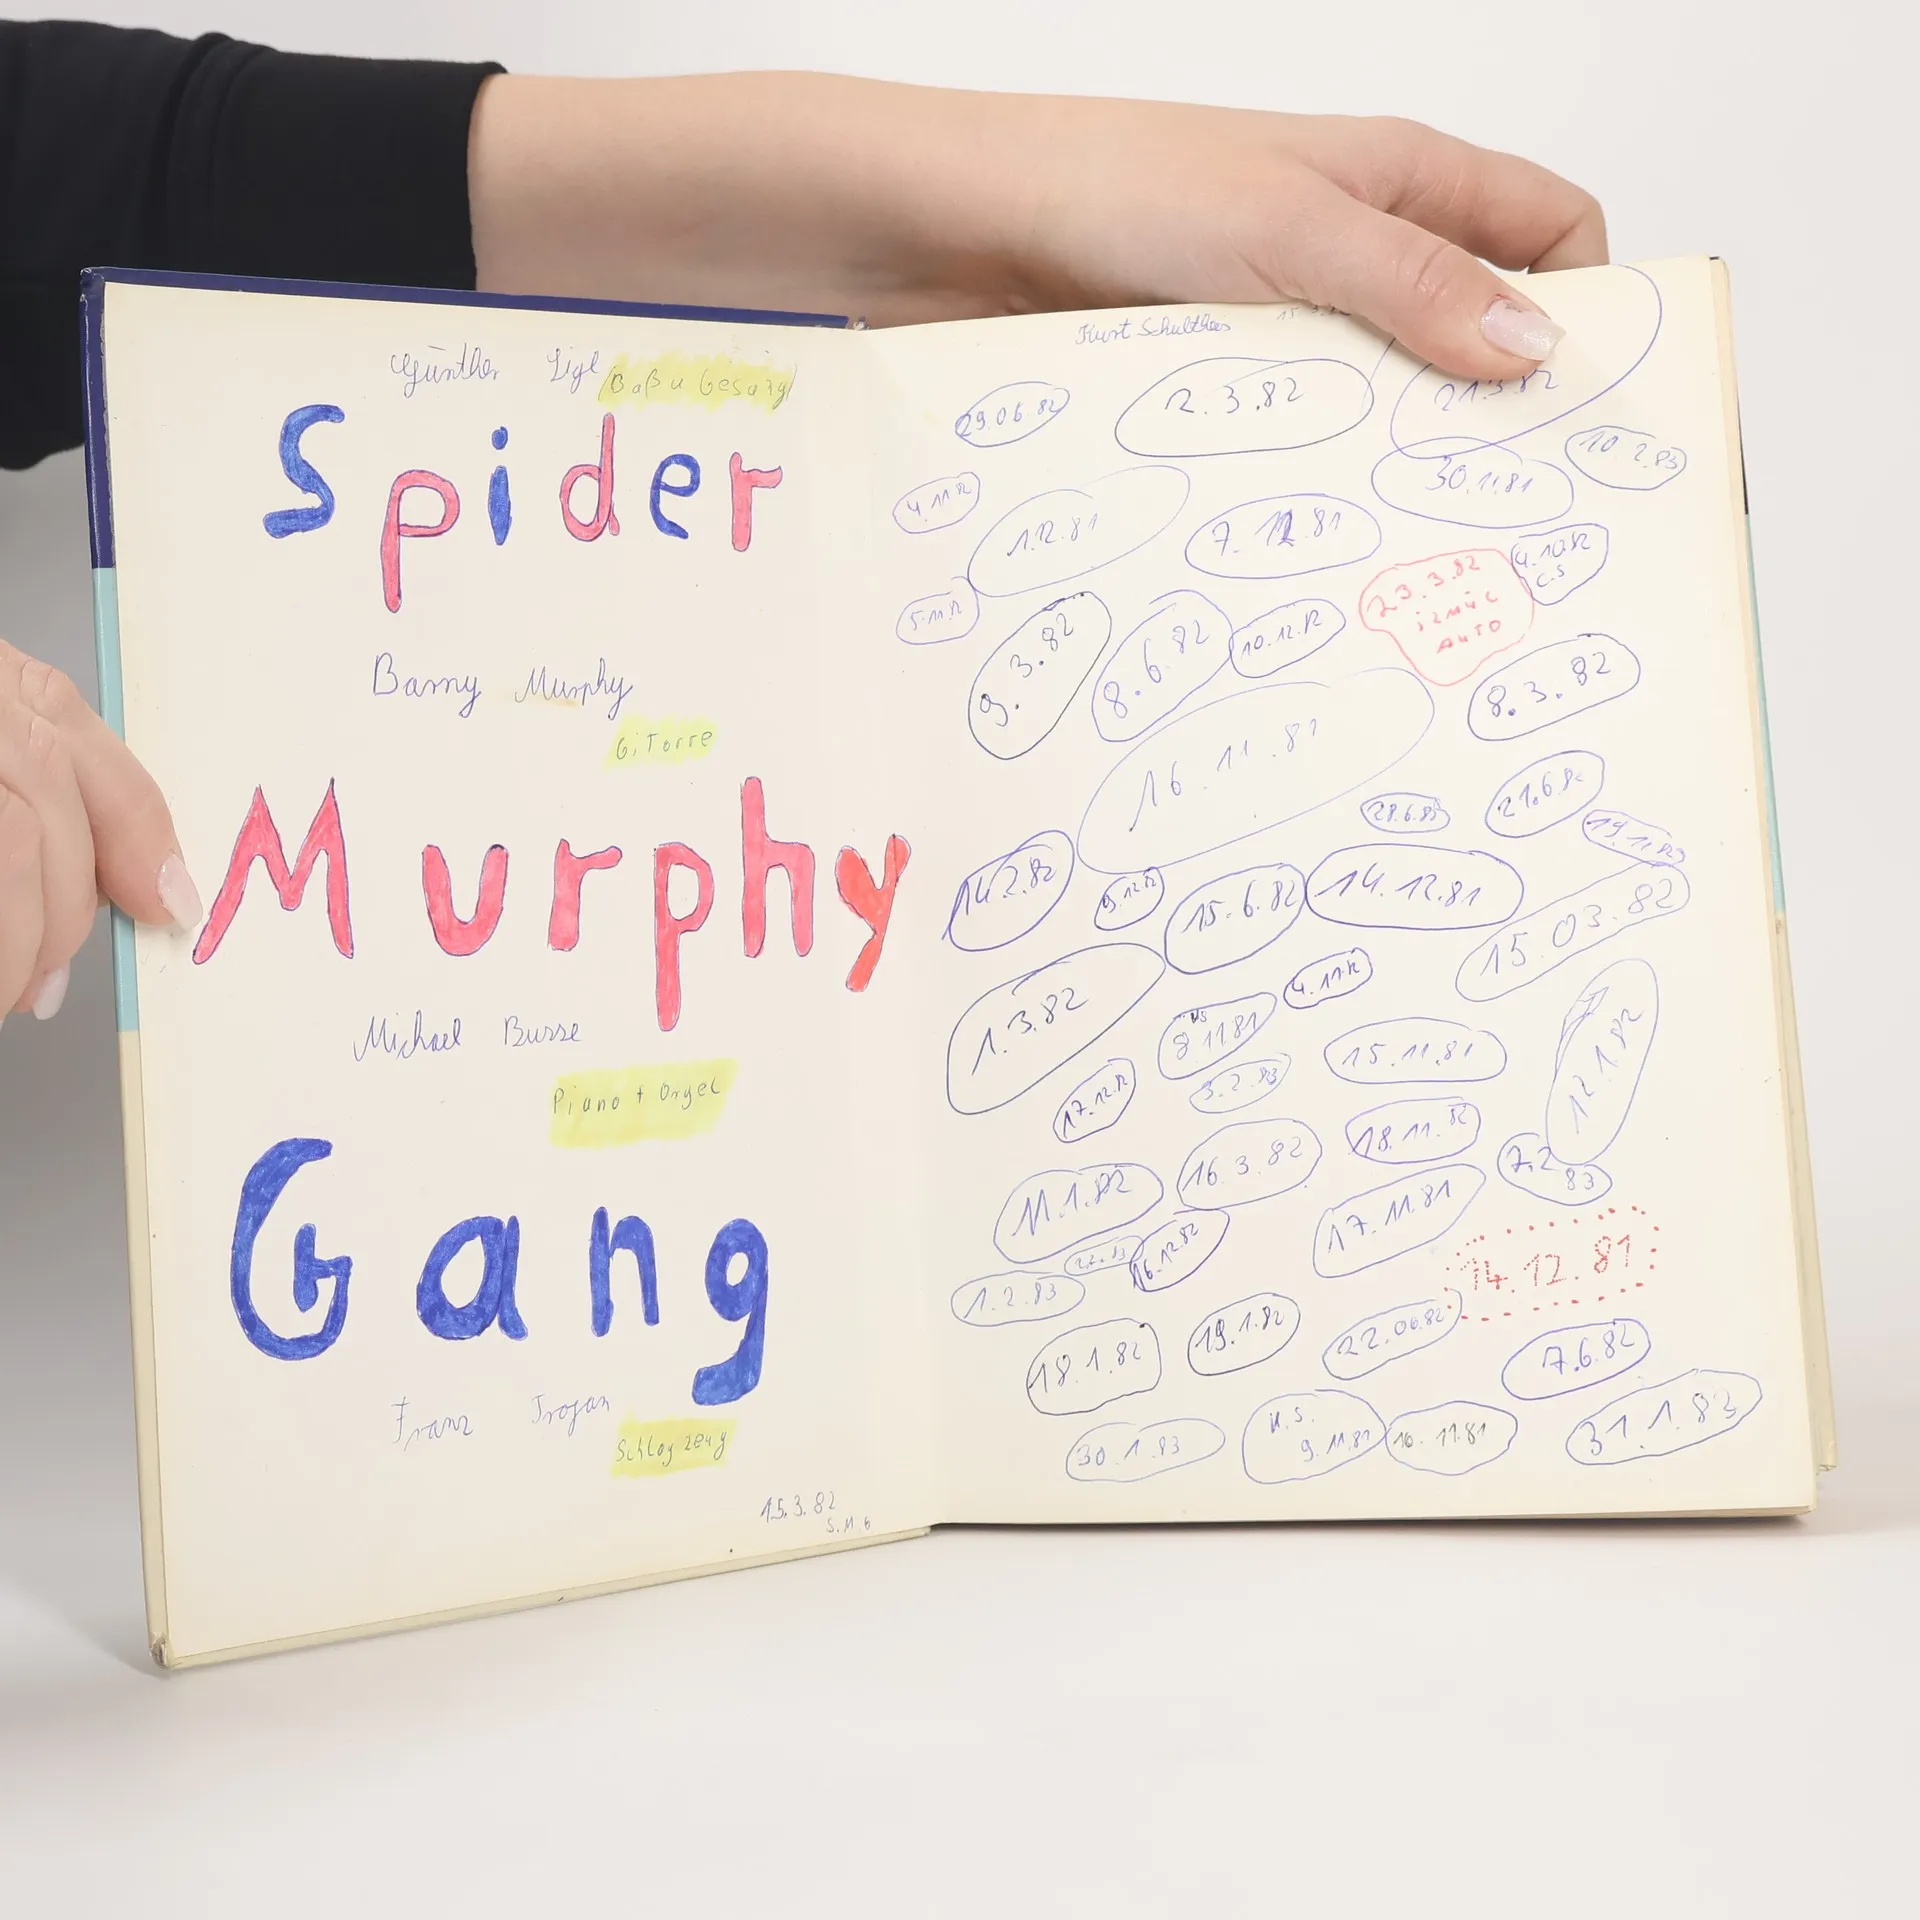 Günther Sigl (Baß u Gesang)
Spider
Barny Murphy
GiTarre
Murphy
Michael Busse
Piano + Orgel
Gang
Franz Trojan
Schlag zeug
15.3.82
S.M.G
Kurt Schultheis
29.06.82
2.3.82
21.3.82
10.2.83
30.11.81
4.11.82
1.12.81
7.12.81
4.10.82
C.S
23.3.82
AUTO
5.11.82
9.3.82
8.6.82
10.12.82
8.3.82
16.11.81
28.6.83
21.6.82
14.2.82
9.12.82
15.6.82
14.12.81
15.03.82
1.3.82
4.11.82
8.11.81
15.11.81
12.1.82
17.12.82
3.2.83
18.11.82
7.2
83
11.1.82
16.3.82
17.11.81
16.12.82
14.12.81
1.2.83
18.1.82
19.1.82
22.06.82
7.6.82
30.1.83
9.11.81
10.11.81
31.1.83